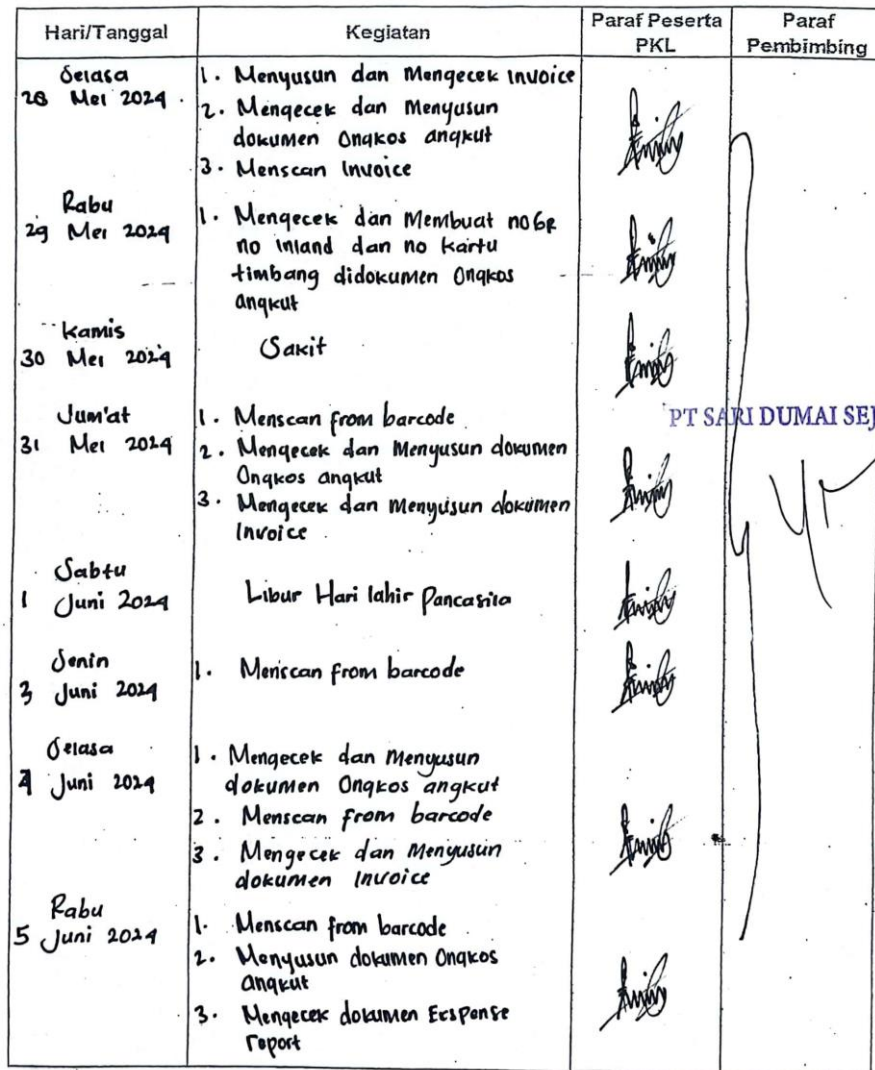 Hari/Tanggal
Kegiatan
Paraf Peserta
PKL
Paraf
Pembimbing
Selasa
28 Mei 2024
1. Menyusun dan Mengecek Invoice
2. Mengecek dan Menyusun
dokumen Ongkos angkut
3. Menscan Invoice
Rabu
29 Mei 2024
1. Mengecek dan Membuat no GR
no inland dan no kartu
timbang didokumen Ongkos
angkut
Kamis
30 Mei 2024
Sakit
Jum'at
31 Mei 2024
1. Menscan from barcode
2. Mengecek dan Menyusun dokumen
Ongkos angkut
3. Mengecek dan Menyusun dokumen
Invoice
PT SARI DUMAI SEJ
Sabtu
1 Juni 2024
Libur Hari lahir Pancasila
Senin
3 Juni 2024
1. Menscan from barcode
Selasa
4 Juni 2024
1. Mengecek dan Menyusun
dokumen Ongkos angkut
2. Menscan from barcode
3. Mengecek dan Menyusun
dokumen Invoice
Rabu
5 Juni 2024
1. Menscan from barcode
2. Menyusun dokumen Ongkos
angkut
3. Mengecek dokumen Exspense
report